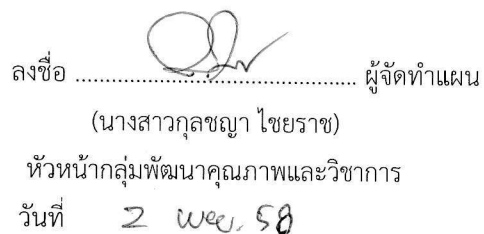 ลงชื่อ ........................................ ผู้จัดทำแผน
(นางสาวกุลชญา ไชยราช)
หัวหน้ากลุ่มพัฒนาคุณภาพและวิชาการ
วันที่ 2 พย. 58